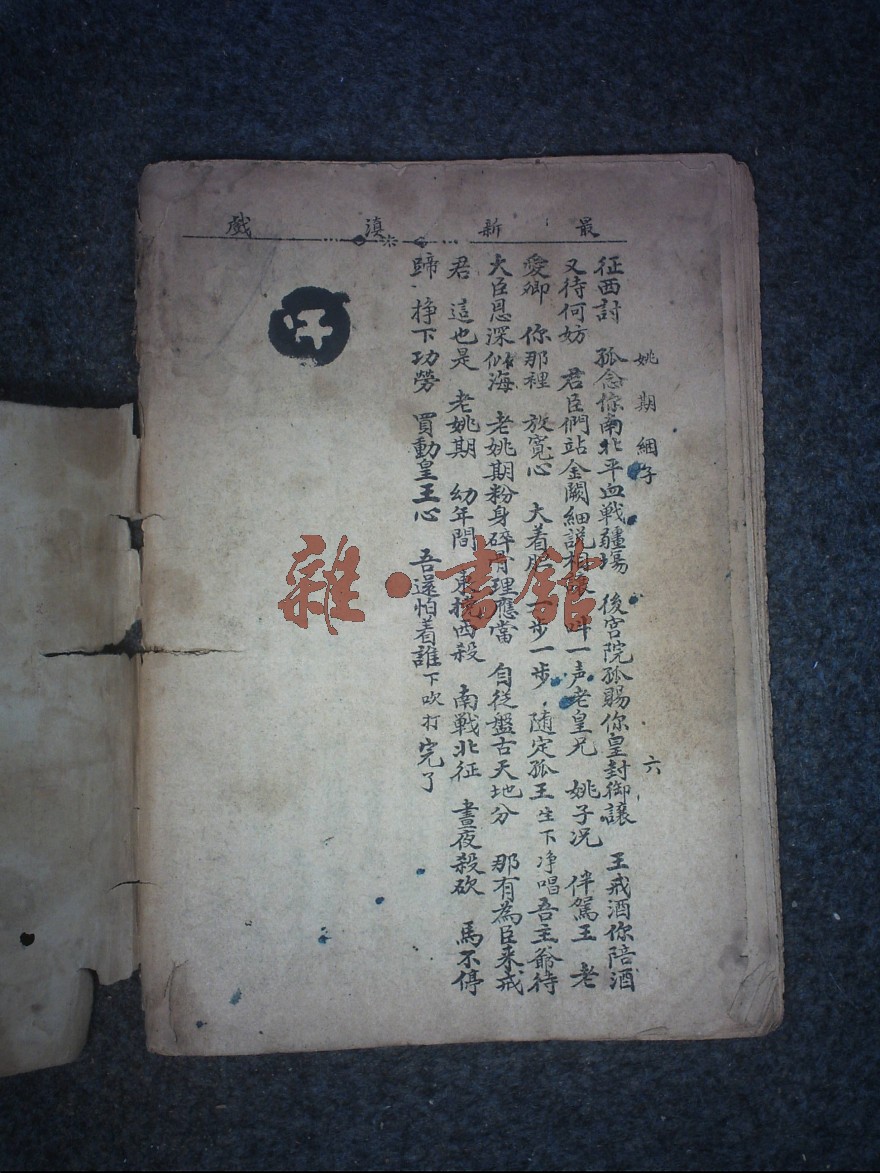 最新滇戲
姚期綑子 六
征西討 孤念你南北平血戰疆場 後宮院孤賜你皇封御讓 王戒酒你陪酒
又待何妨 君臣們站金闕細說 一声老皇兄 姚子况 伴駕王 老
愛卿 你那裡 放寬心 大着胆 一步一步 隨定孤王 生下净唱吾主爺待
大臣恩深似海 老姚期粉身碎骨理應當 自從盤古天地分 那有為臣来戒
君 這也是 老姚期 幼年間 東挽西殺 南戰北征 晝夜殺砍 馬不停
蹄 挣下功勞 買動皇王心 吾還怕着誰 下吹打 完了
雜·書館